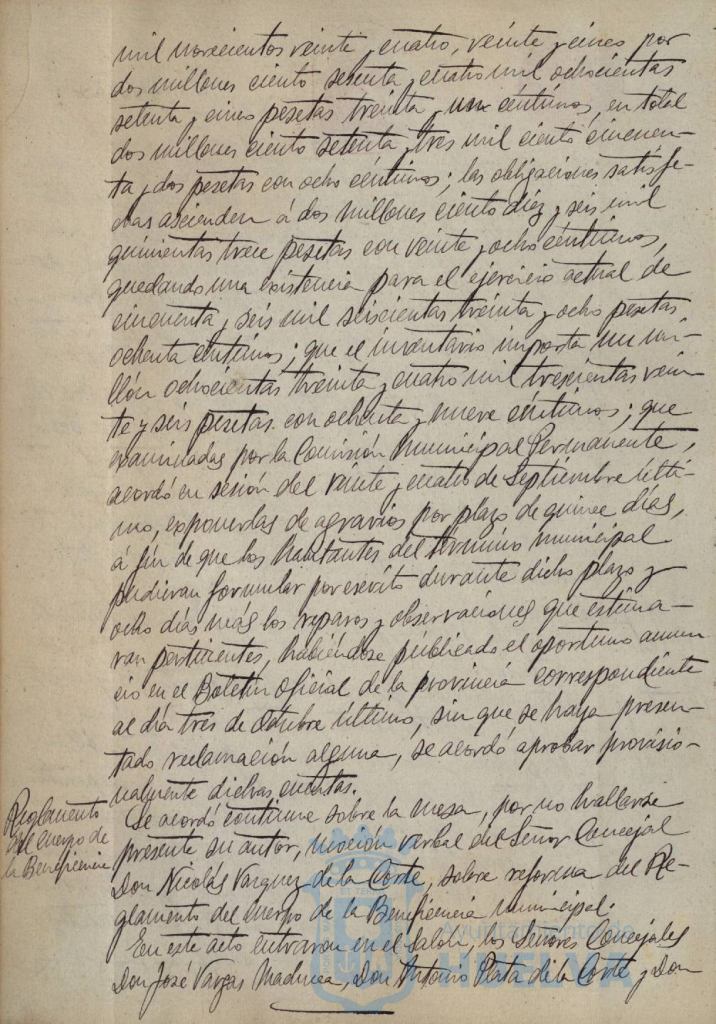 mil novecientos veinte y cuatro, veinte y cinco por
dos millones ciento sesenta y cuatro mil ochocientas
setenta y cinco pesetas treinta y un céntimos, en total
dos millones ciento setenta y tres mil ciento cincuen-
ta y dos pesetas con ocho céntimos; las obligaciones satisfe-
chas ascienden á dos millones ciento diez y seis mil
quinientas trece pesetas con veinte y ocho céntimos,
quedando una existencia para el ejercicio actual de
cincuenta y seis mil seiscientas treinta y ocho pesetas
ochenta céntimos; que el inventario importa un mi-
llón ochocientas treinta y cuatro mil trescientas vein-
te y seis pesetas con ochenta y nueve céntimos; que
examinadas por la Comisión Municipal Permanente,
acordó en sesión del veinte y cuatro de Septiembre últi-
mo, exponerlas de agravios por plazo de quince días,
á fin de que los habitantes del término municipal
pudieran formular por escrito durante dicho plazo y
ocho días más los reparos y observaciones que estima-
ran pertinentes, habiéndose publicado el oportuno anun
cio en el Boletín Oficial de la provincia correspondiente
al día tres de Octubre último, sin que se haya presen-
tado reclamación alguna, se acordó aprobar provisio-
nalmente dichas cuentas.
Reglamento
del Cuerpo de
la Beneficencia
Se acordó continue sobre la mesa, por no hallarse
presente su autor, moción verbal del Señor Concejal
Don Nicolás Vazquez de la Corte, sobre reforma del Re-
glamento del Cuerpo de la Beneficencia Municipal.
En este acto entraron en el Salón, los Señores Concejales
Don José Vargas Madurea, Don Antonio Plata de la Corte y Don
Ayuntamiento de
HUELVA